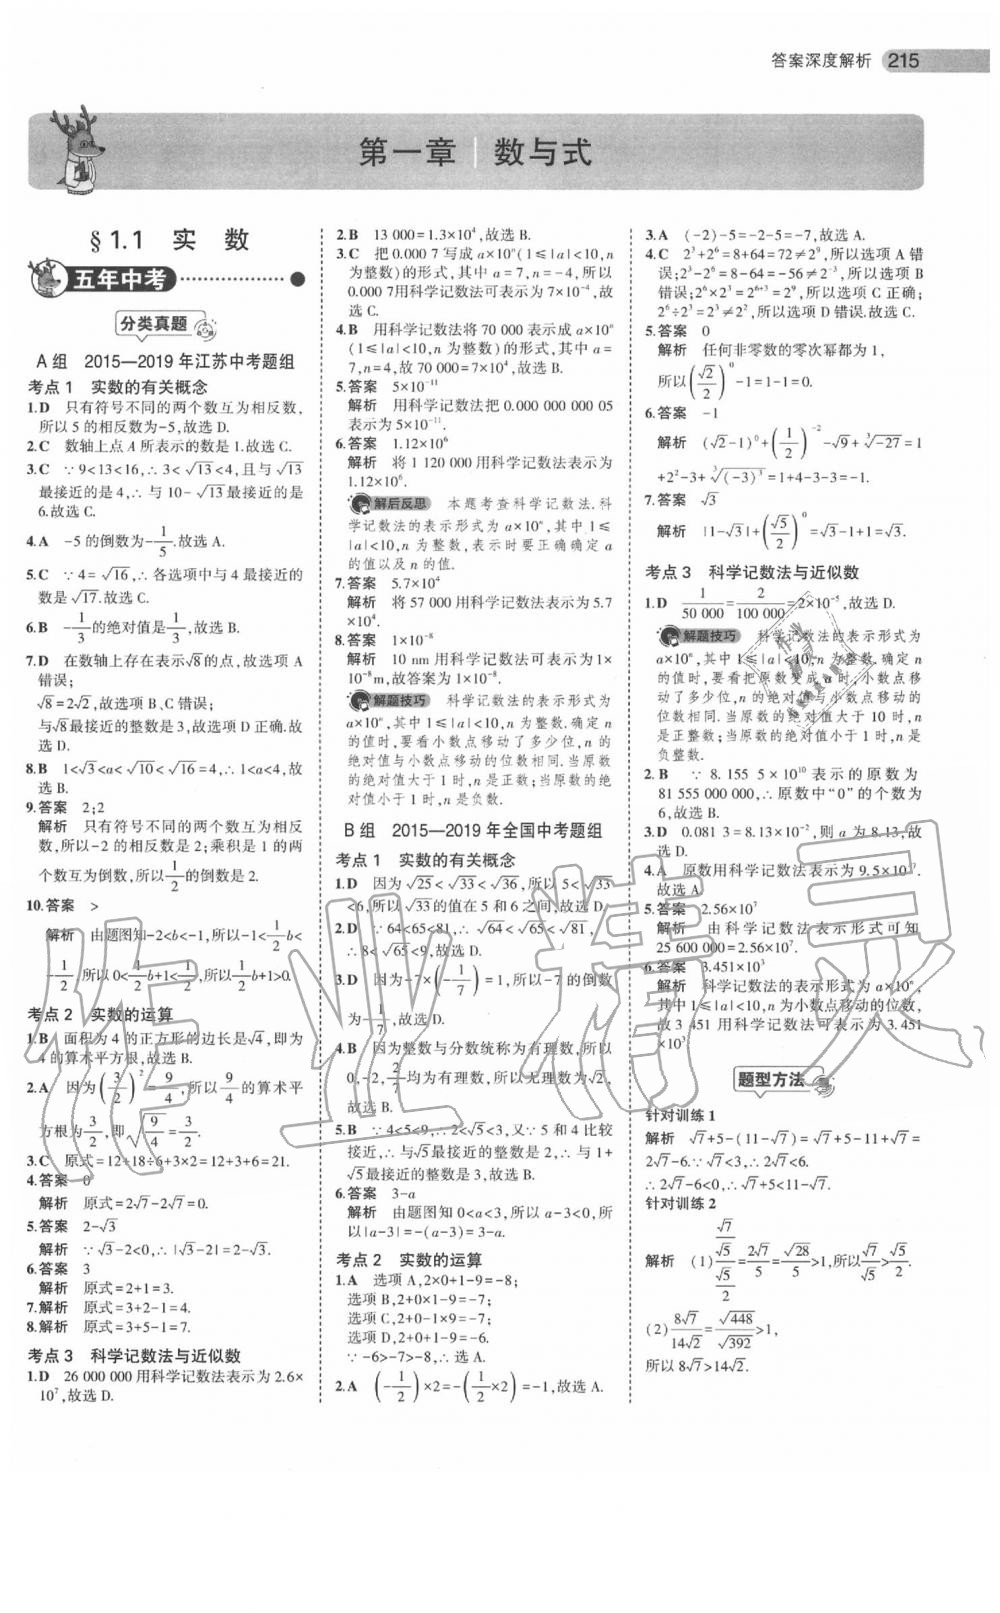 答案深度解析 215
第一章 数与式
§1.1 实 数
五年中考
分类真题
A组 2015—2019年江苏中考题组
考点1 实数的有关概念
1.D 只有符号不同的两个数互为相反数,
所以5的相反数为-5,故选D.
2.C 数轴上点A所表示的数是1.故选C.
3.C ∵9<13<16,∴3<√13<4,且与√13
最接近的是4,∴与10-√13最接近的是
6.故选C.
4.A -5的倒数为-1/5.故选A.
5.C ∵4=√16,∴各选项中与4最接近的
数是√17.故选C.
6.B -1/3的绝对值是1/3,故选B.
7.D 在数轴上存在表示√8的点,故选项A
错误;
√8=2√2,故选项B、C错误;
与√8最接近的整数是3,故选项D正确.故
选D.
8.B 1<√3<a<√10<√16=4,∴1<a<4,故
选B.
9.答案 2;2
解析 只有符号不同的两个数互为相反
数,所以-2的相反数是2;乘积是1的两
个数互为倒数,所以1/2的倒数是2.
10.答案 >
解析 由题图知-2<b<-1,所以-1<1/2b<
-1/2,所以0<1/2b+1<1/2,所以1/2b+1>0.
考点2 实数的运算
1.B 面积为4的正方形的边长是√4,即为
4的算术平方根,故选B.
2.A 因为(3/2)²=9/4,所以9/4的算术平
方根为3/2,即√(9/4)=3/2.
3.C 原式=12+18÷6+3×2=12+3+6=21.
4.答案 0
解析 原式=2√7-2√7=0.
5.答案 2-√3
解析 ∵√3-2<0,∴|√3-2|=2-√3.
6.答案 3
解析 原式=2+1=3.
7.解析 原式=3+2-1=4.
8.解析 原式=3+5-1=7.
考点3 科学记数法与近似数
1.D 26 000 000用科学记数法表示为2.6×
10⁷,故选D.
2.B 13 000=1.3×10⁴,故选B.
3.C 把0.000 7写成a×10ⁿ(1≤|a|<10,n
为整数)的形式,其中a=7,n=-4,所以
0.000 7用科学记数法可表示为7×10⁻⁴,故
选C.
4.B 用科学记数法将70 000表示成a×10ⁿ
(1≤|a|<10,n为整数)的形式,其中a=
7,n=4,故70 000=7×10⁴,故选B.
5.答案 5×10⁻¹¹
解析 用科学记数法把0.000 000 000 05
表示为5×10⁻¹¹.
6.答案 1.12×10⁶
解析 将1 120 000用科学记数法表示为
1.12×10⁶.
解后反思 本题考查科学记数法.科
学记数法的表示形式为a×10ⁿ,其中1≤
|a|<10,n为整数,表示时要正确确定a
的值以及n的值.
7.答案 5.7×10⁴
解析 将57 000用科学记数法表示为5.7
×10⁴.
8.答案 1×10⁻⁸
解析 10 nm用科学记数法可表示为1×
10⁻⁸m,故答案为1×10⁻⁸.
解题技巧 科学记数法的表示形式为
a×10ⁿ,其中1≤|a|<10,n为整数.确定n
的值时,要看小数点移动了多少位,n的
绝对值与小数点移动的位数相同.当原数
的绝对值大于1时,n是正数;当原数的绝
对值小于1时,n是负数.
B组 2015—2019年全国中考题组
考点1 实数的有关概念
1.D 因为√25<√33<√36,所以5<√33
<6,所以√33的值在5和6之间,故选D.
2.D ∵64<65<81,∴√64<√65<√81,
∴8<√65<9,故选D.
3.D 因为-7×(-1/7)=1,所以-7的倒数
为-1/7,故选D.
4.B 因为整数与分数统称为有理数,所以
0,-2,2/7均为有理数,所以无理数为√2,
故选B.
5.B ∵4<5<9,∴2<√5<3,又∵5和4比较
接近,∴与√5最接近的整数是2,∴与1+
√5最接近的整数是3,故选B.
6.答案 3-a
解析 由题图知0<a<3,所以a-3<0,所
以|a-3|=-(a-3)=3-a.
考点2 实数的运算
1.A 选项A,2×0+1-9=-8;
选项B,2+0×1-9=-7;
选项C,2+0-1×9=-7;
选项D,2+0+1-9=-6.
∵-6>-7>-8,∴选A.
2.A (-1/2)×2=-(1/2×2)=-1,故选A.
3.A (-2)-5=-2-5=-7,故选A.
4.C 2³+2⁶=8+64=72≠2⁹,所以选项A错
误;2³-2⁶=8-64=-56≠2⁻³,所以选项B
错误;2⁶×2³=2⁶⁺³=2⁹,所以选项C正确;
2⁶÷2³=2³≠2²,所以选项D错误.故选C.
5.答案 0
解析 任何非零数的零次幂都为1,
所以(√2/2)⁰-1=1-1=0.
6.答案 -1
解析 (√2-1)⁰+(1/2)⁻²-√9+∛-27=1
+2²-3+∛(-3)³=1+4-3-3=-1.
7.答案 √3
解析 |1-√3|+(√5/2)⁰=√3-1+1=√3.
考点3 科学记数法与近似数
1.D 1/50 000=2/100 000=2×10⁻⁵,故选D.
解题技巧 科学记数法的表示形式为
a×10ⁿ,其中1≤|a|<10,n为整数.确定n
的值时,要看把原数变成a时,小数点移
动了多少位,n的绝对值与小数点移动的
位数相同.当原数的绝对值大于10时,n
是正整数;当原数的绝对值小于1时,n是
负整数.
2.B ∵8.155 5×10¹⁰表示的原数为
81 555 000 000,∴原数中“0”的个数为
6,故选B.
3.D 0.081 3=8.13×10⁻²,则a为8.13,故
选D.
4.A 原数用科学记数法表示为9.5×10⁷.
故选A.
5.答案 2.56×10⁷
解析 由科学记数法表示形式可知
25 600 000=2.56×10⁷.
6.答案 3.451×10³
解析 科学记数法的表示形式为a×10ⁿ,
其中1≤|a|<10,n为小数点移动的位数,
故3 451用科学记数法可表示为3.451
×10³
题型方法
针对训练1
解析 √7+5-(11-√7)=√7+5-11+√7=
2√7-6.∵√7<3,∴2√7<6.
∴2√7-6<0,∴√7+5<11-√7.
针对训练2
解析 (1)(√7/√5)/(√5/2)=2√7/5=√28/5>1,所以√7/√5>√5/2.
(2)8√7/14√2=√448/√392>1,
所以8√7>14√2.
作业精灵